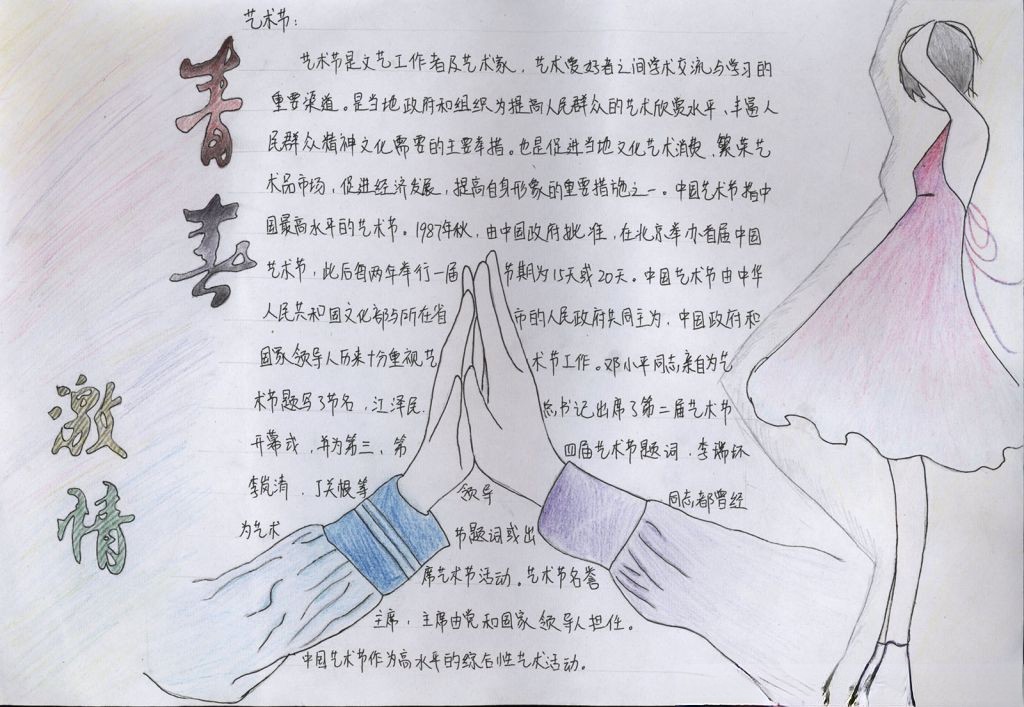 青春
激情
艺术节：
艺术节是文艺工作者及艺术家，艺术爱好者之间学术交流与学习的
重要渠道。是当地政府和组织为提高人民群众的艺术欣赏水平、丰富人
民群众精神文化需要的主要举措。也是促进当地文化艺术消费、繁荣艺
术品市场，促进经济发展，提高自身形象的重要措施之一。中国艺术节指中
国最高水平的艺术节。1987年秋，由中国政府批准，在北京举办首届中国
艺术节，此后每两年举行一届 节期为15天或20天。中国艺术节由中华
人民共和国文化部与所在省 市的人民政府共同主为，中国政府和
国家领导人历来十分重视艺 术节工作。邓小平同志亲自为艺
术节题写了节名，江泽民 总书记出席了第二届艺术节
开幕式，并为第三、第 四届艺术节题词，李瑞环
李岚清，丁关根等 领导 同志都曾经
为艺术 节题词或出
席艺术节活动。艺术节名誉
主席，主席由党和国家领导人担任。
中国艺术节作为高水平的综合性艺术活动。